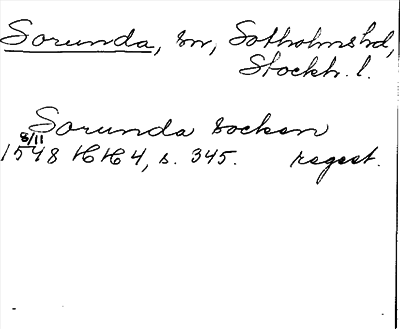 Sorunda, sn, Sotholmshd,
Stockh. l.
Sorunda socken
8/11
1548 HH 4, s. 345. regest.